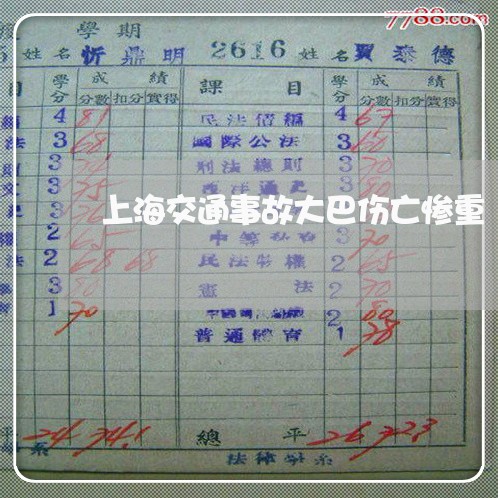 7788.com
學期
姓名 忻鼎明 2616 姓名 賈泰德
目 學分 成績 課目 學分 成績
分數 扣分 實得 分數 扣分 實得
4 81 民法債編 4 67
法 3 68 國際公法 3 60
3 刑法總則 3 70
3 75 法 3 80
上海交通事故大巴伤亡惨重
2 65 中等 3 70
法 2 68 68 民法物權 2 65
3 80 憲法 2 70
1 70 2 80
普通體育 1 78
平 24 74.1 總平 26 72.3
系 法律學系